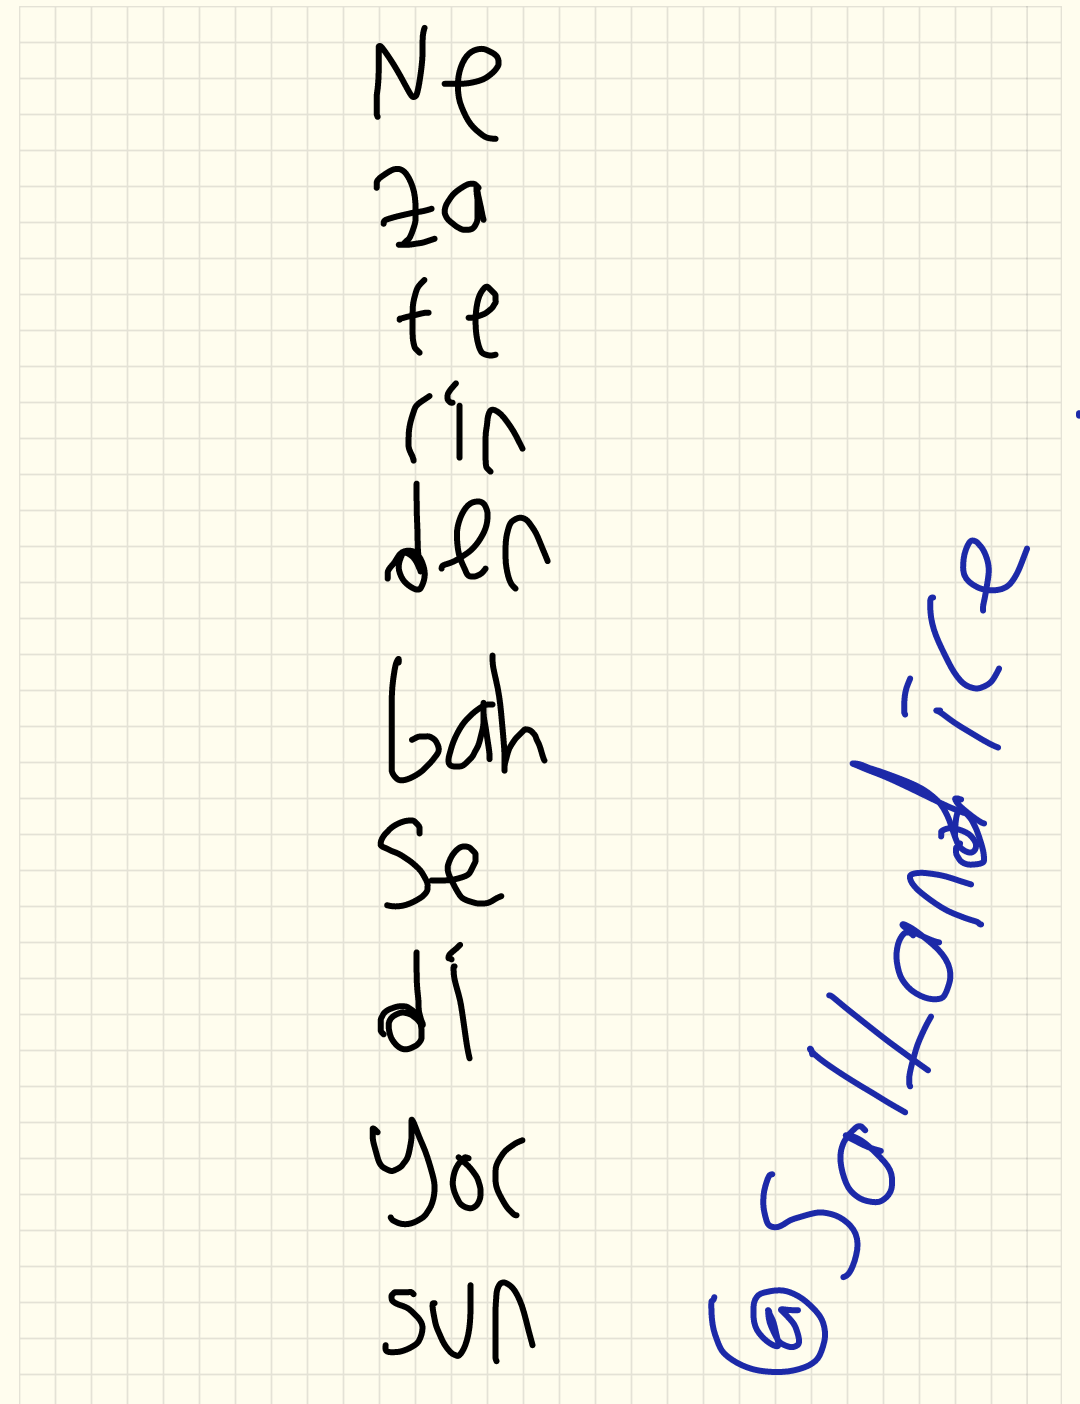 Ne
za
fe
rin
den
bah
se
di
yor
sun
@saltandice